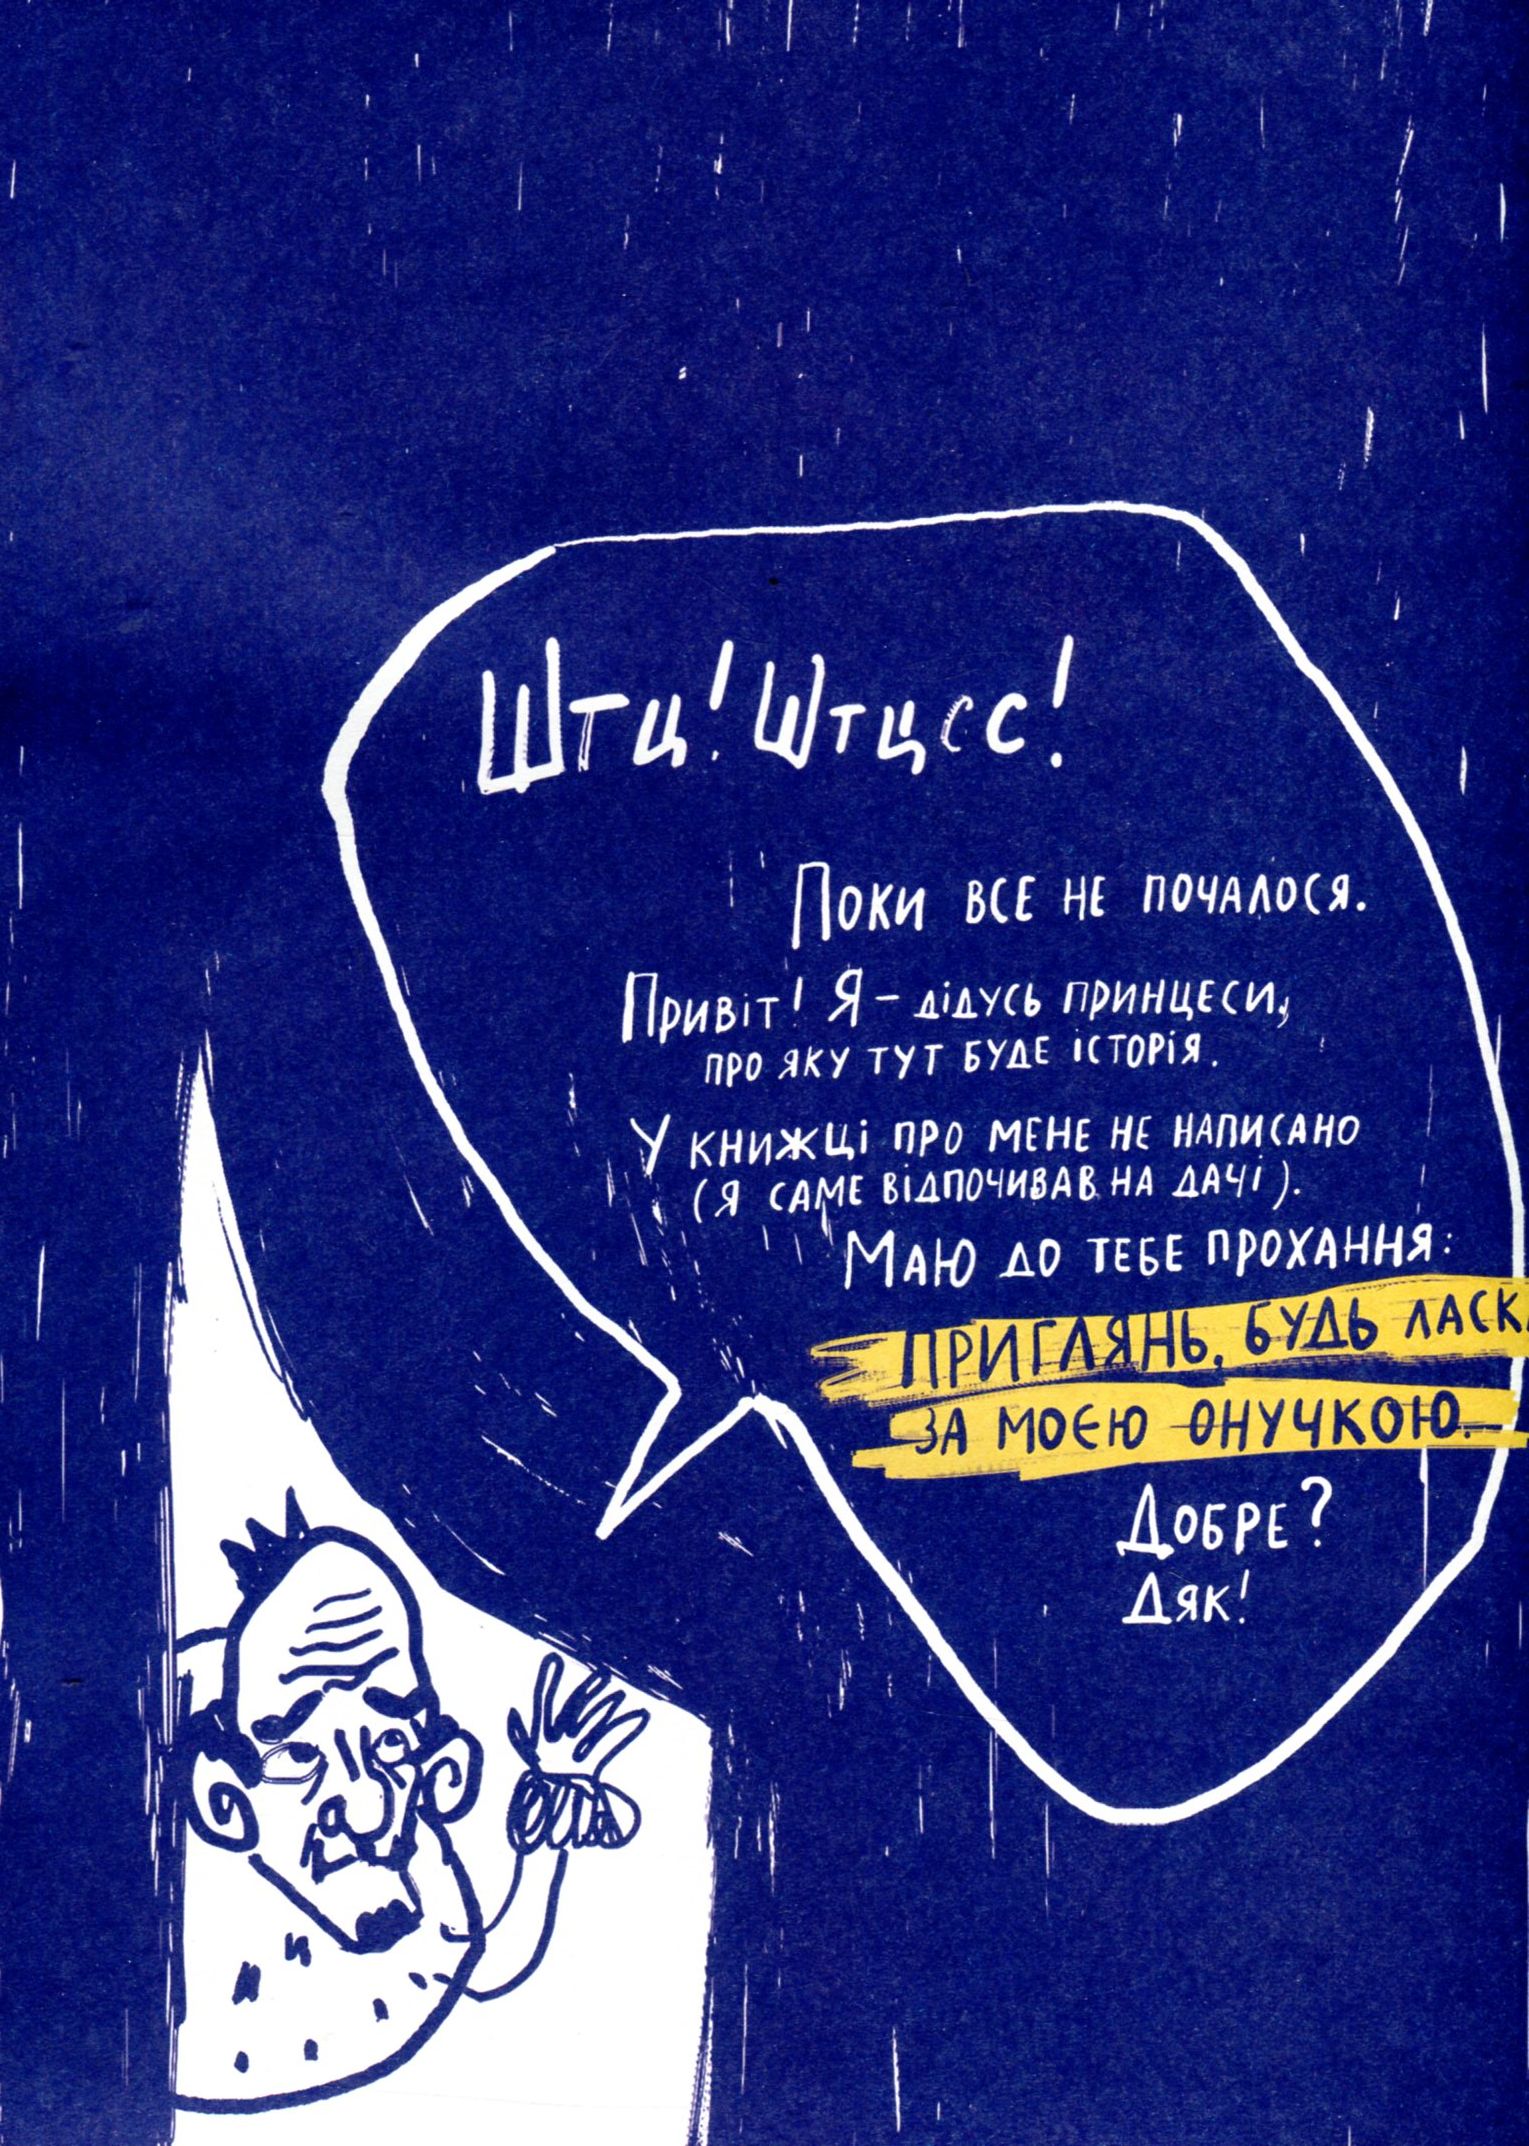 Штц! Штцсс!
Поки все не почалося.
Привіт! Я – дідусь принцеси,
про яку тут буде історія.
У книжці про мене не написано
(я саме відпочивав на дачі).
Маю до тебе прохання:
приглянь, будь ласк
за моєю онучкою.
Добре?
Дяк!